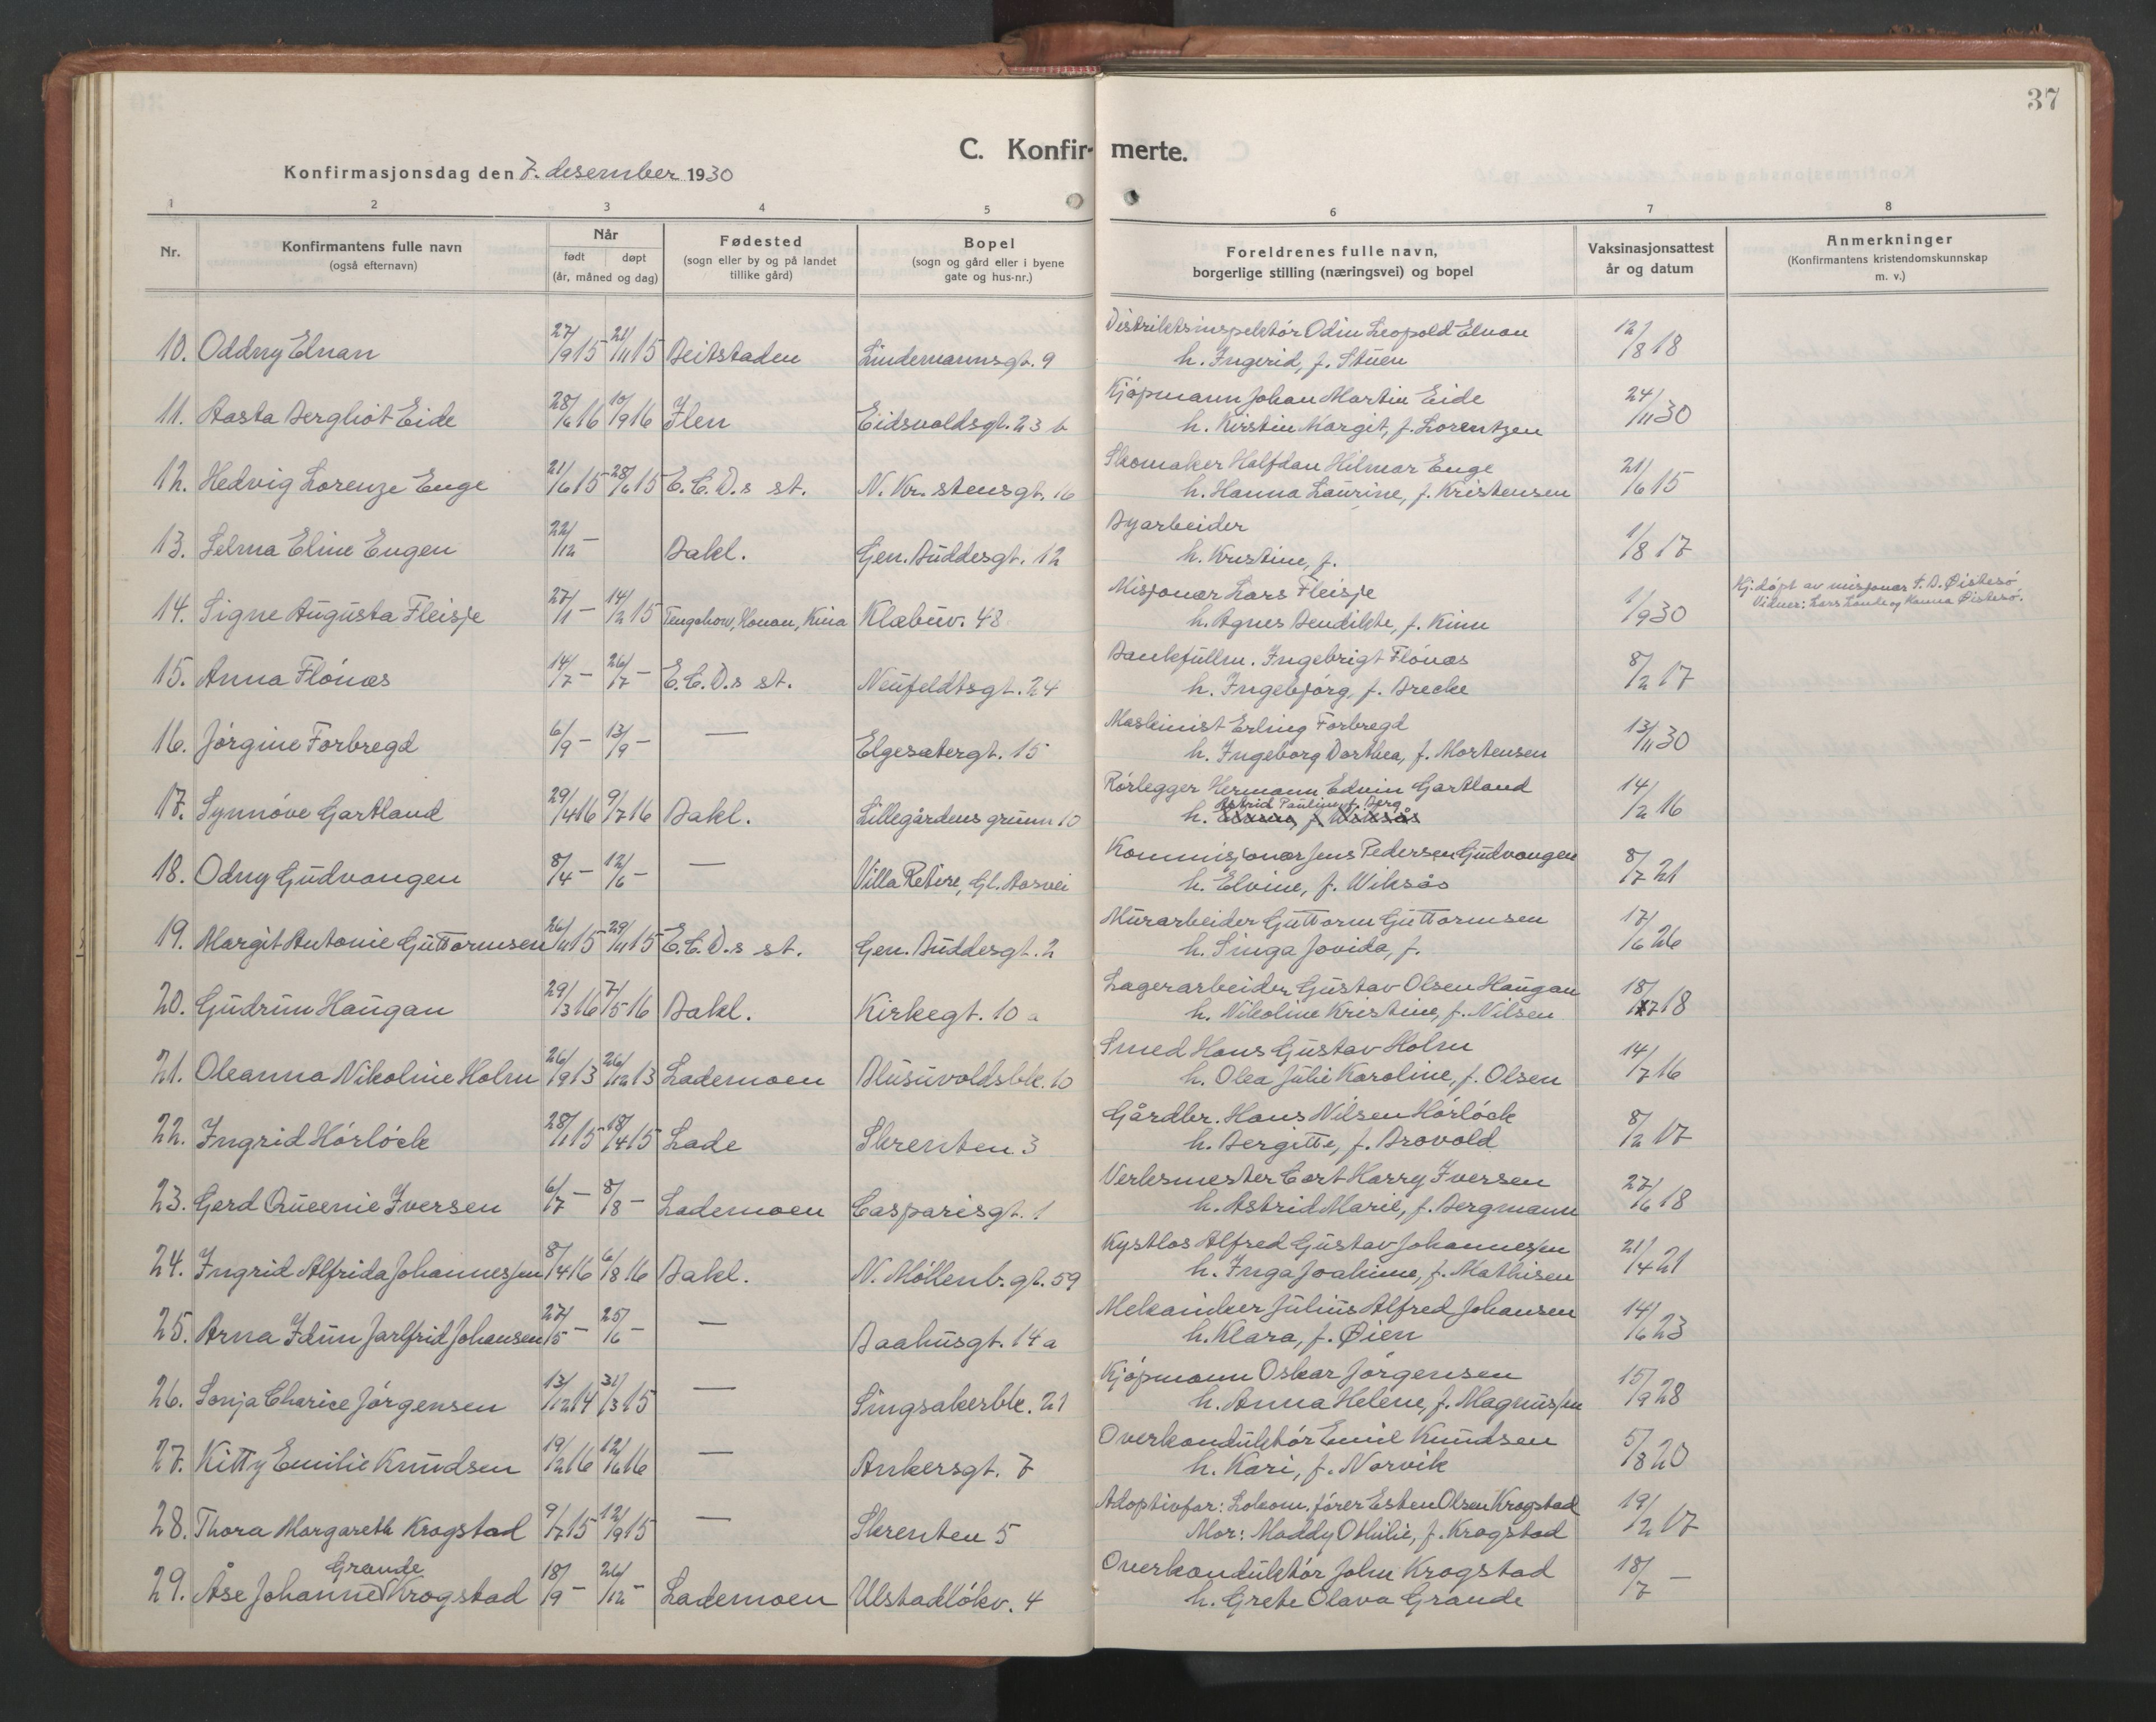 37
C. Konfir- merte.
Konfirmasjonsdag den 7. desember 1930
1 2 3 4 5 6 7 8
Nr.
Konfirmantens fulle navn
(også efternavn)
Når
født døpt
(år, måned og dag)
Fødested
(sogn eller by og på landet
tillike gård)
Bopel
(sogn og gård eller i byene
gate og hus-nr.)
Foreldrenes fulle navn,
borgerlige stilling (næringsvei) og bopel
Vaksinasjonsattest
år og datum
Anmerkninger
(Konfirmantens kristendomskunnskap
m. v.)
Distriktsinspektór Odin Leopold Elnan
10. Oddny Elnan 27/9 15 21/11 15 Beitstaden Lindemannsgt. 9 h. Ingerid, f. Stuen 12/8 18
Kjópmann Johan Martin Eide
11. Aasta Bergliot Eide 28/6 16 10/9 16 Ilen Eidsvoldsgt. 23 b h. Kirstin Margit, f. Lorentzen 24/11 30
Skomaker Halfdan Hilmar Enge
12. Hedvig Lorenze Enge 21/6 15 28/6 15 E.C.D.s st. N. Kr. stensgt. 16 h. Hanna Laurine, f. Kristensen 21/6 15
Byarbeider
13. Selma Eline Engen 22/12 – Bakl. Gen. Buddesgt. 12 h. Kristine, f. 1/8 17
Misjonær Lars Fleisje
14. Signe Augusta Fleisje 27/1 – 14/2 15 Tengchow, Honan, Kina Klæbuv. 48 h. Agnes Bendikte, f. Kinn 1/9 30 Hj. døpt av misjonær T. B. Øistesø.
Vidner: Lars Lande og Hanna Øistesø.
Bankfullm. Ingebrigt Flónæs
15. Anna Flónæs 14/7 – 26/7 – E.C.D.s st. Neufeldtsgt. 24 h. Ingebjórg, f. Brecke 8/2 17
Maskinist Erling Forbregd
16. Jórgine Forbregd 6/9 – 13/9 – — Elgesætergt. 15 h. Ingeborg Dorthea, f. Mortensen 13/11 30
Rórlegger Hermann Edvin Gartland
17. Synnóve Gartland 29/4 16 9/7 16 Bakl. Lillegårdens grunn 10 h. Astrid Pauline, f. Berg 14/2 16
Kommisjonær Jens Pedersen Gudvangen
18. Odny Gudvangen 8/4 – 12/6 – — Villa Retire, Gl. Aasvei h. Elvine, f. Wiksås 8/7 21
Murarbeider Guttorm Guttormsen
19. Margit Antonie Guttormsen 26/11 15 29/11 15 E.C.D.s st. Gen. Buddesgt. 2 h. Singa Jovida, f. 17/6 26
Lagerarbeider Gustav Olsen Haugan
20. Gudrun Haugan 29/3 16 7/5 16 Bakl. Kirkegt. 10 a h. Nikoline Kristine, f. Nilsen 18/7 18
Smed Hans Gustav Holm
21. Oleanna Nikoline Holm 26/9 13 26/12 13 Lademoen Blusuvoldsbk. 10 h. Olea Julie Karoline, f. Olsen 14/7 16
Gårdbr. Hans Nilsen Hórlóck
22. Ingrid Hórlóck 28/1 15 18/4 15 Lade Skrenten 3 h. Bergitte, f. Brovold 8/2 17
Verksmester Cort Harry Iversen
23. Gerd Queenie Iversen 6/7 – 8/8 – Lademoen Casparisgt. 1 h. Astrid Marie, f. Bergmann 27/6 18
Kystlos Alfred Gustav Johannessen
24. Ingrid Alfrida Johannessen 8/4 16 6/8 16 Bakl. N. Móllenb. gt. 59 h. Inga Joakime, f. Mathisen 21/4 21
Mekaniker Julius Alfred Johansen
25. Arna Idun Jarlfrid Johansen 27/5 – 25/6 – — Baahusgt. 14 a h. Klara, f. Øien 14/6 23
Kjópmann Oskar Jórgensen
26. Sonja Charice Jórgensen 13/12 14 31/3 15 — Singsakerbk. 21 h. Anna Helene, f. Magnussen 15/9 28
Overkonduktór Emil Knudsen
27. Kitty Emilie Knudsen 19/2 16 12/6 16 — Ankersgt. 7 h. Kari, f. Norvik 5/8 20
Adoptivfar: Lokom. fórer Esten Olsen Krogstad
28. Thora Margareth Krogstad 9/7 15 12/9 15 — Skrenten 5 Mor: Maddy Othilie, f. Krogstad 19/2 17
Overkonduktór John Krogstad
29. Åse Johanne Grande Krogstad 18/9 – 26/12 – Lademoen Ulstadlókv. 4 h. Grete Olava Grande 18/7 –